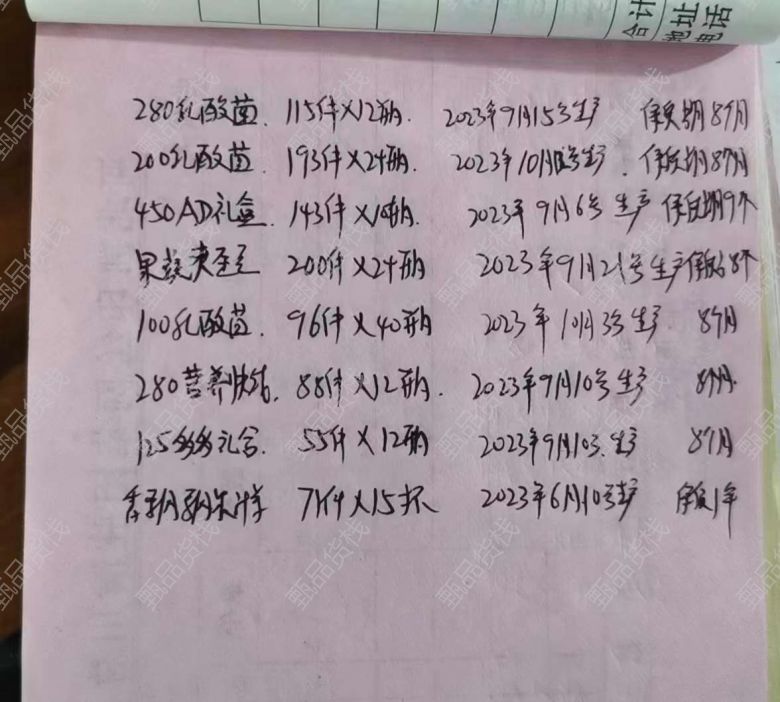 合计
地址
电话
280乳酸菌. 115件×12瓶. 2023年9月15号生产 保质期8个月
200乳酸菌. 193件×24瓶. 2023年10月 号生产. 保质期8个月
450AD礼盒. 143件× 瓶. 2023年9月6号生产 保质期9个
果蔬 200件×24瓶 2023年9月21号生产 保质 8个
100乳酸菌. 96件×40瓶 2023年10月3号生产 8个月
280营养快线. 88件×12瓶. 2023年9月10号生产 8个月.
125多多礼合. 55件×12瓶 2023年9月10号.生产 8个月
香飘飘 71件×15杯 2023年6月10号生产 保质1年
甄品货栈